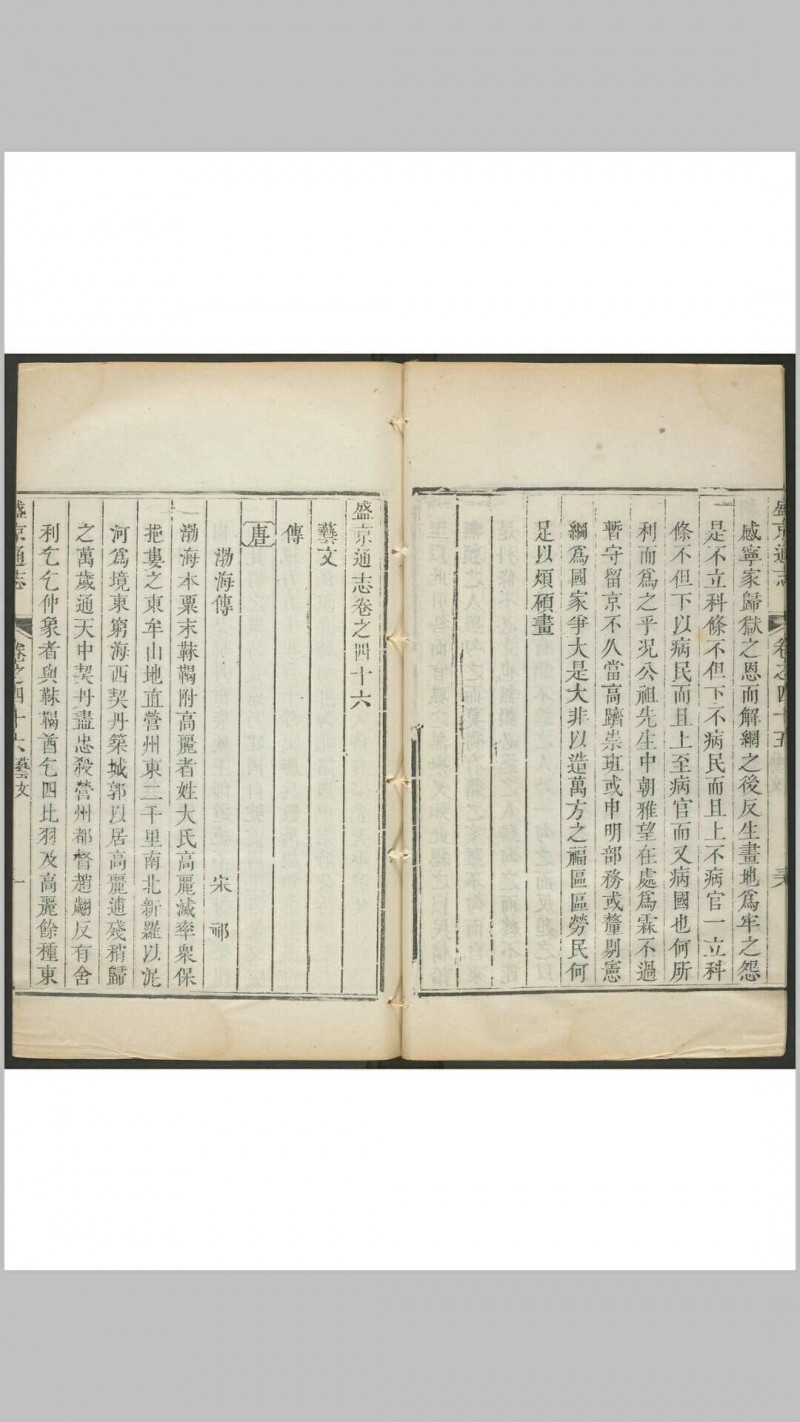 盛京通志
卷之四十五
感寧家歸獄之恩而解綱之後反生畫地爲牢之怨
是不立科條不但下不病民而且上不病官一立科
條不但下以病民而且上至病官而又病國也何所
利而爲之乎况公祖先生中朝雅望在處爲霖不過
暫守留京不久當高躋崇班或申明部務或釐剔憲
綱爲國家爭大是大非以造萬方之福區區勞民何
足以煩碩畫
盛京通志卷之四十六
藝文
傳
唐
渤海傳 宋祁
渤海本粟末靺鞨附高麗者姓大氏高麗滅率衆保
挹婁之東牟山地直營州東二千里南北新羅以泥
河爲境東窮海西契丹築城郭以居高麗逋殘稍歸
之萬歲通天中契丹盡忠殺營州都督趙翽反有舍
利乞乞仲象者與靺鞨酋乞四比羽及高麗餘種東
盛京通志
卷之四十六 藝文 一